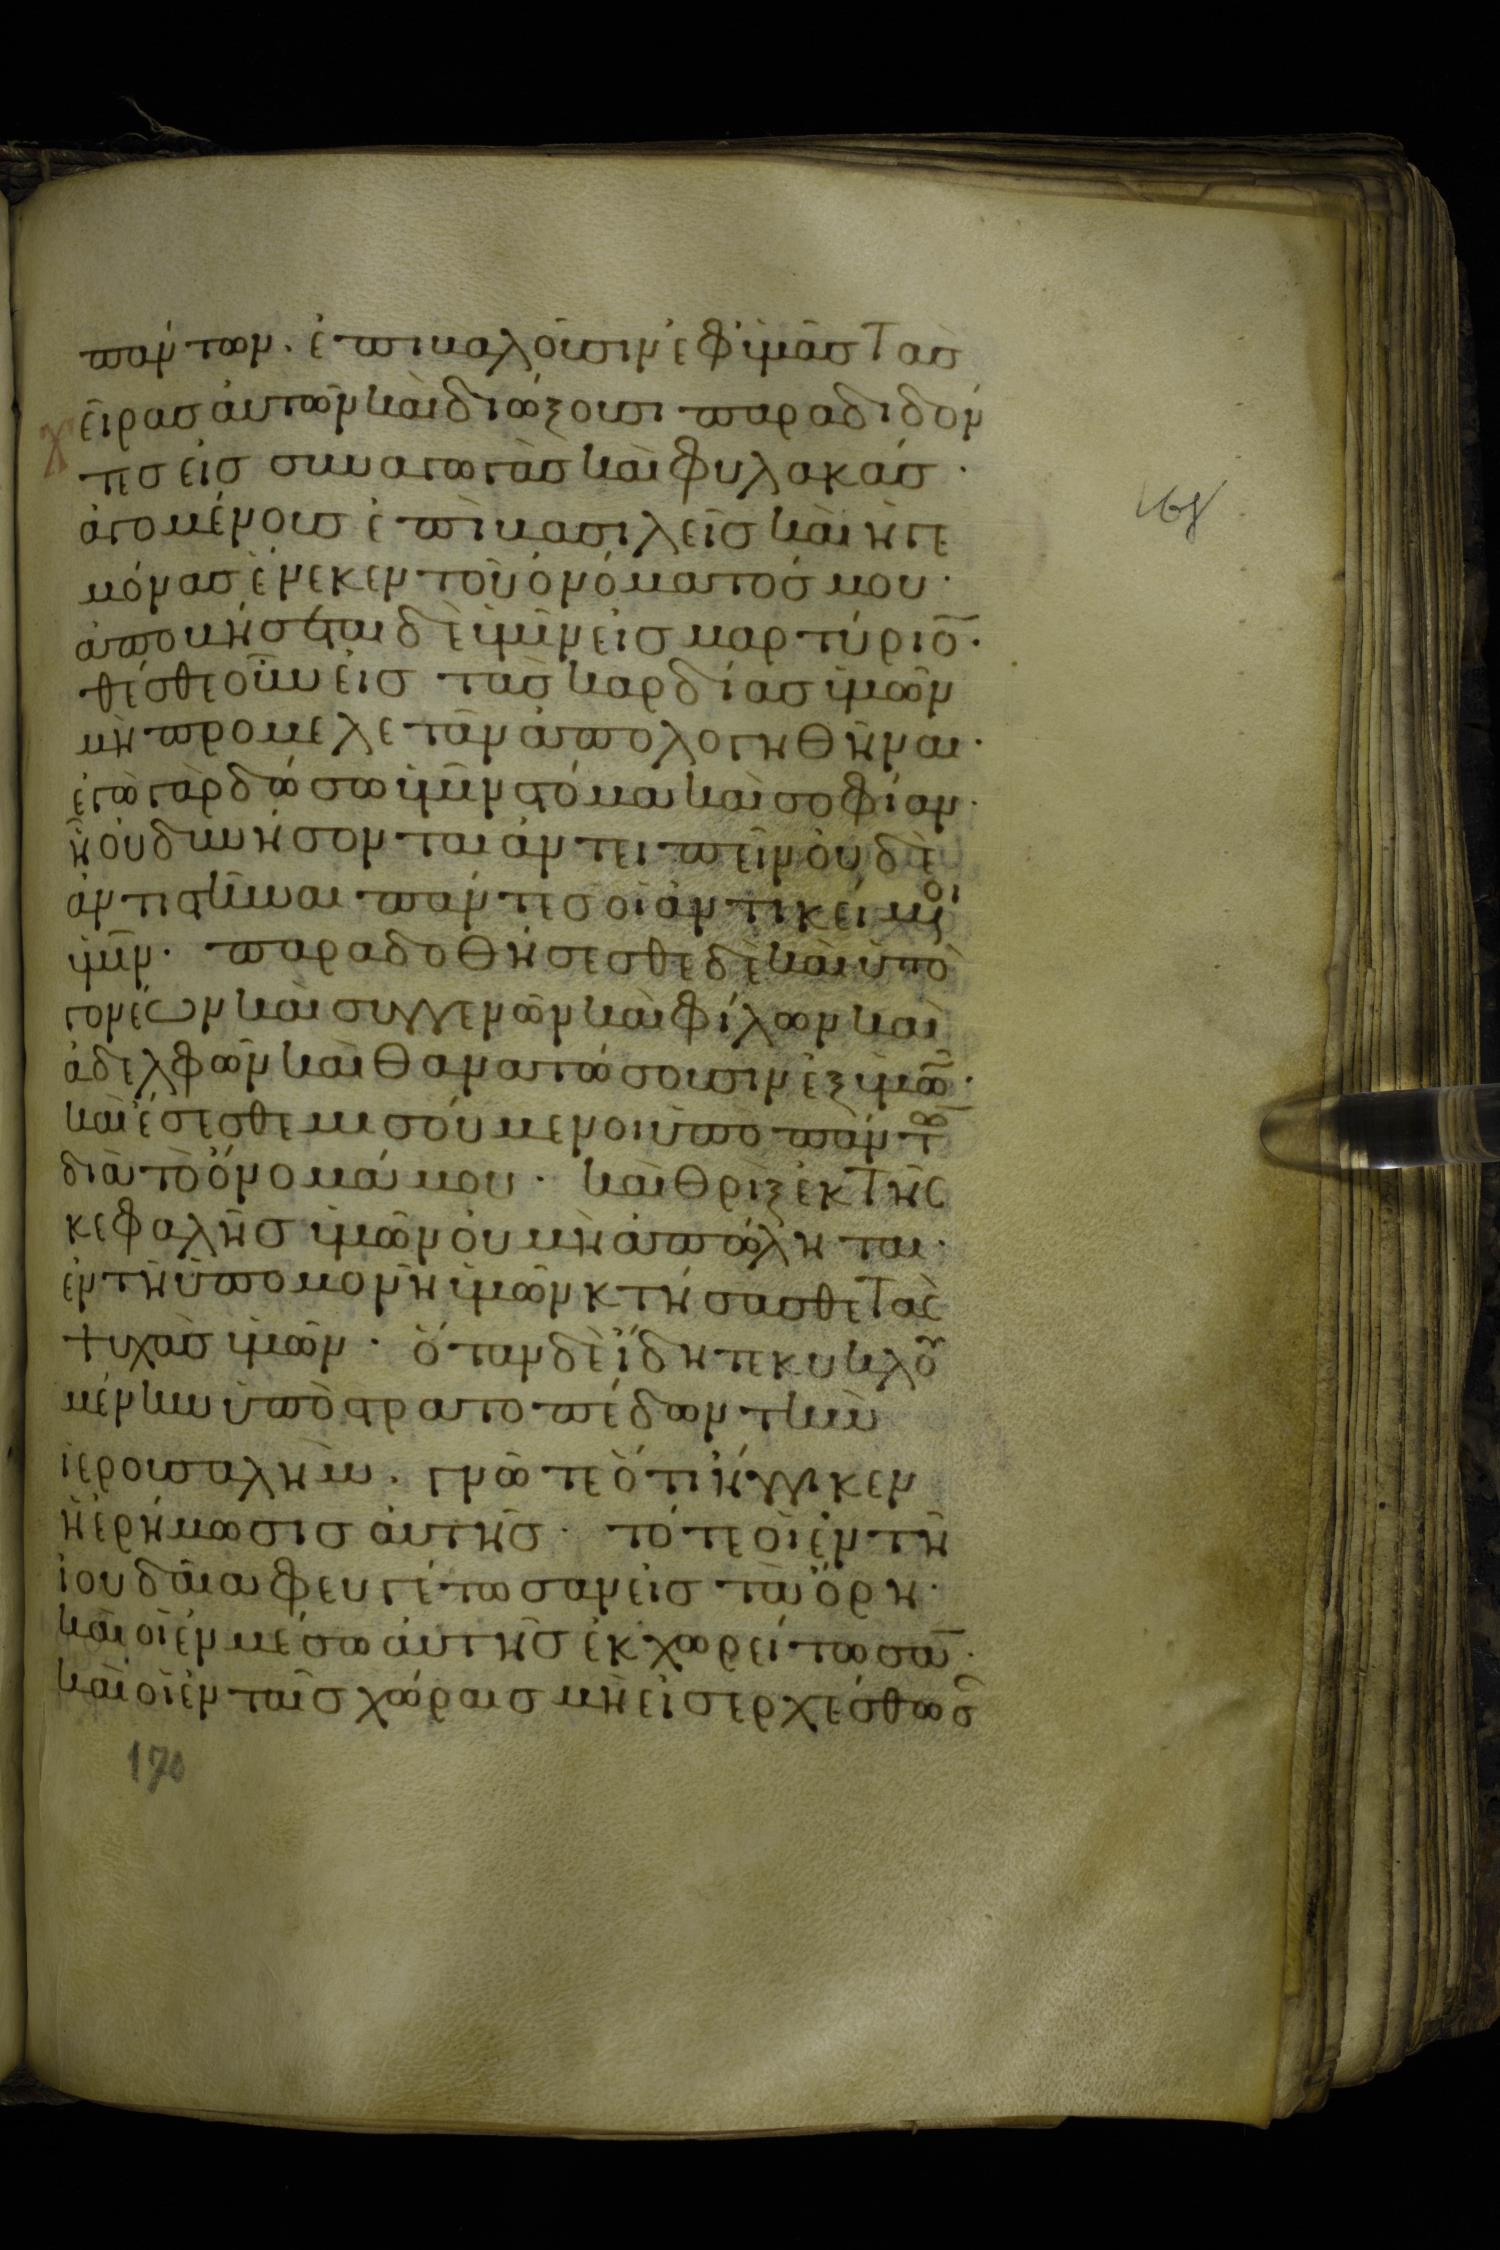 πάντων· ἐπιβαλοῦσιν ἐφ ὑμᾶς τὰς
χεῖρας ἀυτῶν καὶ διώξουσι παραδιδόν
τες εἰς συναγωγὰς καὶ φυλακάς·
ἀγομένους ἐπὶ βασιλεῖς καὶ ἡγε
μόνας ἕνεκεν τοῦ ὀνόματός μου·
ἀποβήσεται δὲ ὑμῖν εἰς μαρτύριο̅·
θέσθε οὖν εἰς τὰς καρδίας ὑμῶν
μὴ προμελετᾶν ἀπολογηθῆναι·
ἐγὼ γὰρ δώσω ὑμῖν στόμα καὶ σοφίαν·
ἧ οὐ δυνήσονται ἀντειπεῖν οὐδὲ
ἀντιστῆναι πάντες οἱ ἀντικείμενοι
ὑμῖν· παραδοθήσεσθε δὲ καὶ ὑπὸ
γονέων καὶ συγγενῶν καὶ φίλων καὶ
ἀδελφῶν καὶ θανατώσουσιν ἐξ ὑμῶ̅·
καὶ ἔσεσθε μισούμενοι ὑπὸ πάντω̅
διὰ τὸ ὄνομά μου· καὶ θρὶξ ἐκ τῆς
κεφαλῆς ὑμῶν οὐ μὴ ἀπώληται·
ἐν τῆ ὑπομονῆ ὑμῶν κτήσασθε τὰς
ψυχὰς ὑμῶν· ὅταν δὲ ἴδητε κυκλου
μένην ὑπὸ στρατοπέδων τὴν
ιερουσαλὴμ· γνῶτε ὅτι ἤγγικεν
ἡ ἐρήμωσις ἀυτῆς· τότε οἱ ἐν τῆ
ἰουδαία φευγέτωσαν εἰς τὰ ὄρη·
καὶ οἱ ἐν μέσω ἀυτῆς ἐκχωρείτωσα̅·
καὶ οἱ ἐν ταῖς χώραις μὴ εἰσερχέσθως
170